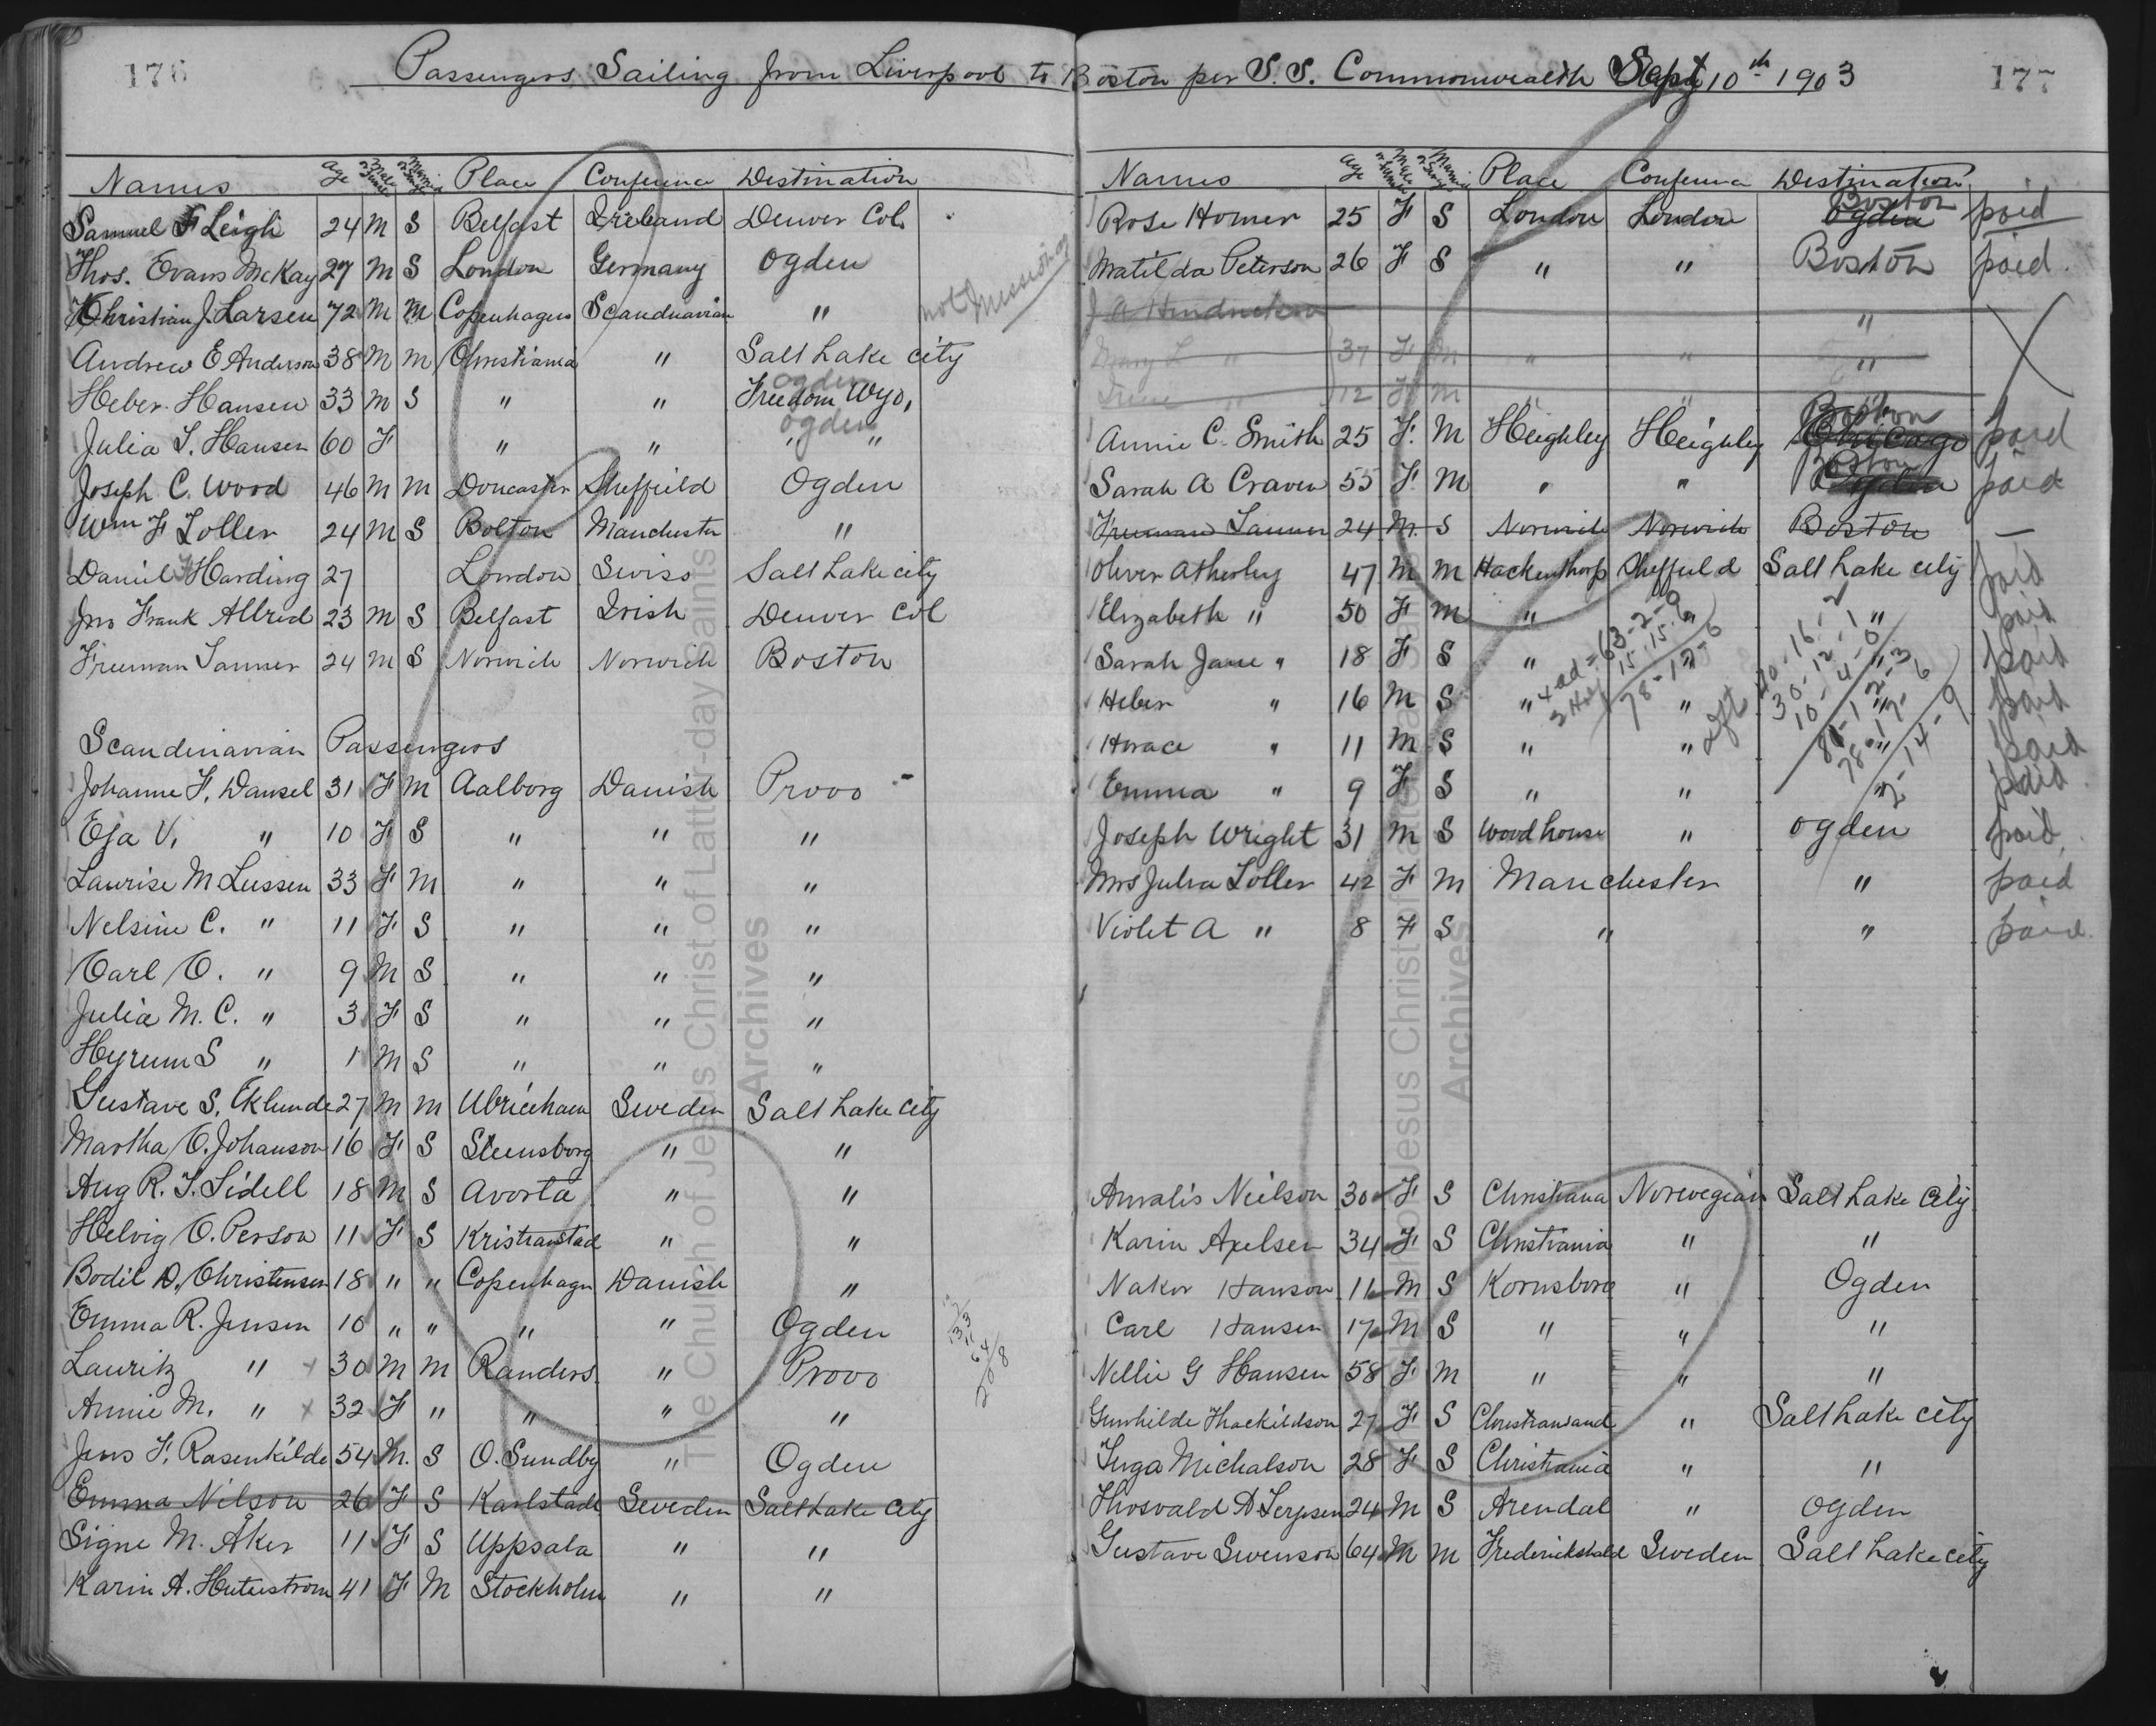 176
Passengers Sailing from Liverpool to Boston per S.S. Commonwealth Sept 10th 1903
177
Names Age Male or Female Married or Single Place Conference Destination
Samuel F Leigh 24 M S Belfast Ireland Denver Col.
Thos. Evans McKay 27 M S London Germany Ogden
Christian J. Larsen 72 M M Copenhagen Scandinavian " not Missionary
Andrew E Anderson 38 M M Christiania " Salt Lake city
Heber Hansen 33 M S " " Freedom Wyo, Ogden
Julia S. Hansen 60 F " " " " Ogden
Joseph C. Wood 46 M M Doncaster Sheffield Ogden
Wm F Toller 24 M S Bolton Manchester "
Daniel Harding 27 London Swiss Salt Lake city
Jno Frank Allred 23 M S Belfast Irish Denver Col
Freeman Tanner 24 M S Norwich Norwich Boston
Scandinavian Passengers
Johanne F. Dansel 31 F M Aalborg Danish Provo -
Eja V. " 10 F S " " "
Laurise M Lussen 33 F M " " "
Nelsine C. " 11 F S " " "
Carl O. " 9 M S " " "
Julia M. C. " 3 F S " " "
Hyrum S " 1 M S " " "
Gustave S. Eklunde 27 M M Ulricehaen Sweden Salt Lake City
Martha O. Johanson 16 F S Steensborg " "
Aug R. T. Lidell 18 M S Avorta " "
Helvig O. Person 11 F S Kristianstad " "
Bodil D. Christensen 18 " " Copenhagn Danish "
Emma R. Jensen 10 " " " " Ogden
Lauritz " 30 M M Randers " Provo
Annie M. " 32 F " " " "
Jens F. Rasenkilde 54 M. S O. Sundby " Ogden
Emma Nilson 26 F S Karlstade Sweden Salt Lake City
Signe M. Åker 11 F S Uppsala " "
Karin A. Huterstrom 41 F M Stockholm " "
Names Age Male or Female Married or Single Place Conference Destination
Rose Homer 25 F S London London Ogden Boston paid
Matilda Peterson 26 F S " " Boston paid.
J A Hendrickson "
Mary L " 37 F M " " "
Irene " 12 F M " "
Annie C. Smith 25 F. M Heighley Heighley Chicago Boston paid
Sarah A Craven 55 F M " " Ogden Boston paid
Freeman Tanner 24 M. S Norwich Norwich Boston —
Oliver Atherley 47 M M Hackenthorp Sheffield Salt Lake city paid
Elizabeth " 50 F M " " " paid
Sarah Jane " 18 F S " " " paid
Heber " 16 M S " " " paid
Horace " 11 M S " " " paid
Emma " 9 F S " " " paid
Joseph Wright 31 M S Woodhouse " Ogden paid,
Mrs Julia Toller 42 F M Manchester " paid
Violet A " 8 F S " " paid.
Annalis Neilson 30 F S Christiana Norwegian Salt Lake City
Karin Axelsen 34 F S Christiania " "
Nakor Hanson 11 M S Kornsboro " Ogden
Carl Hansen 17 M S " " "
Nellie G Hansen 58 F M " " "
Gunhilde Thackildson 27 F S Christiansand " Salt Lake city
Inga Michalson 28 F S Christiania " "
Thosvald A Terpsen 24 M S Arendal " Ogden
Gustave Swenson 64 M M Frederickshald Sweden Salt Lake city
The Church of Jesus Christ of Latter-day Saints
Archives
The Church of Jesus Christ of Latter-day Saints
Archives